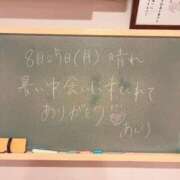 8月5日(月) 晴れ
暑い中会いに来てくれて
ありがとう
あいり